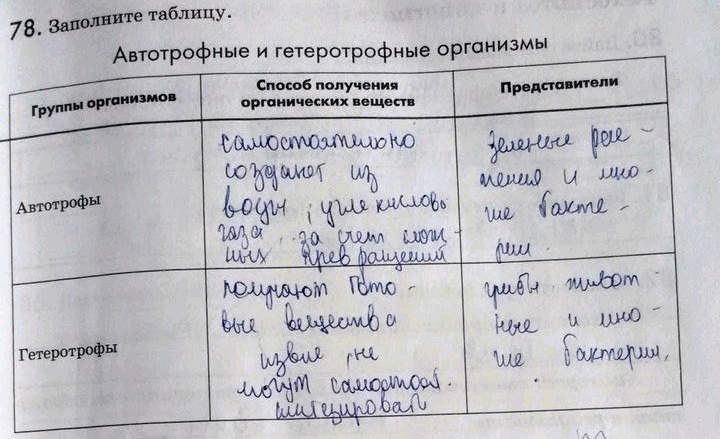 78. Заполните таблицу.
Автотрофные и гетеротрофные организмы
Группы организмов
Способ получения
органических веществ
Представители
Автотрофы
самостоятельно
создают из
воды, углекислово
газа, за счет слож-
ных превращений
зеленые рас-
тения и мно-
гие бакте-
рии.
Гетеротрофы
получают гото-
вые вещества
извне, не
могут самостоя.
синтезировать
грибы живот
ные и мно-
гие бактерии.